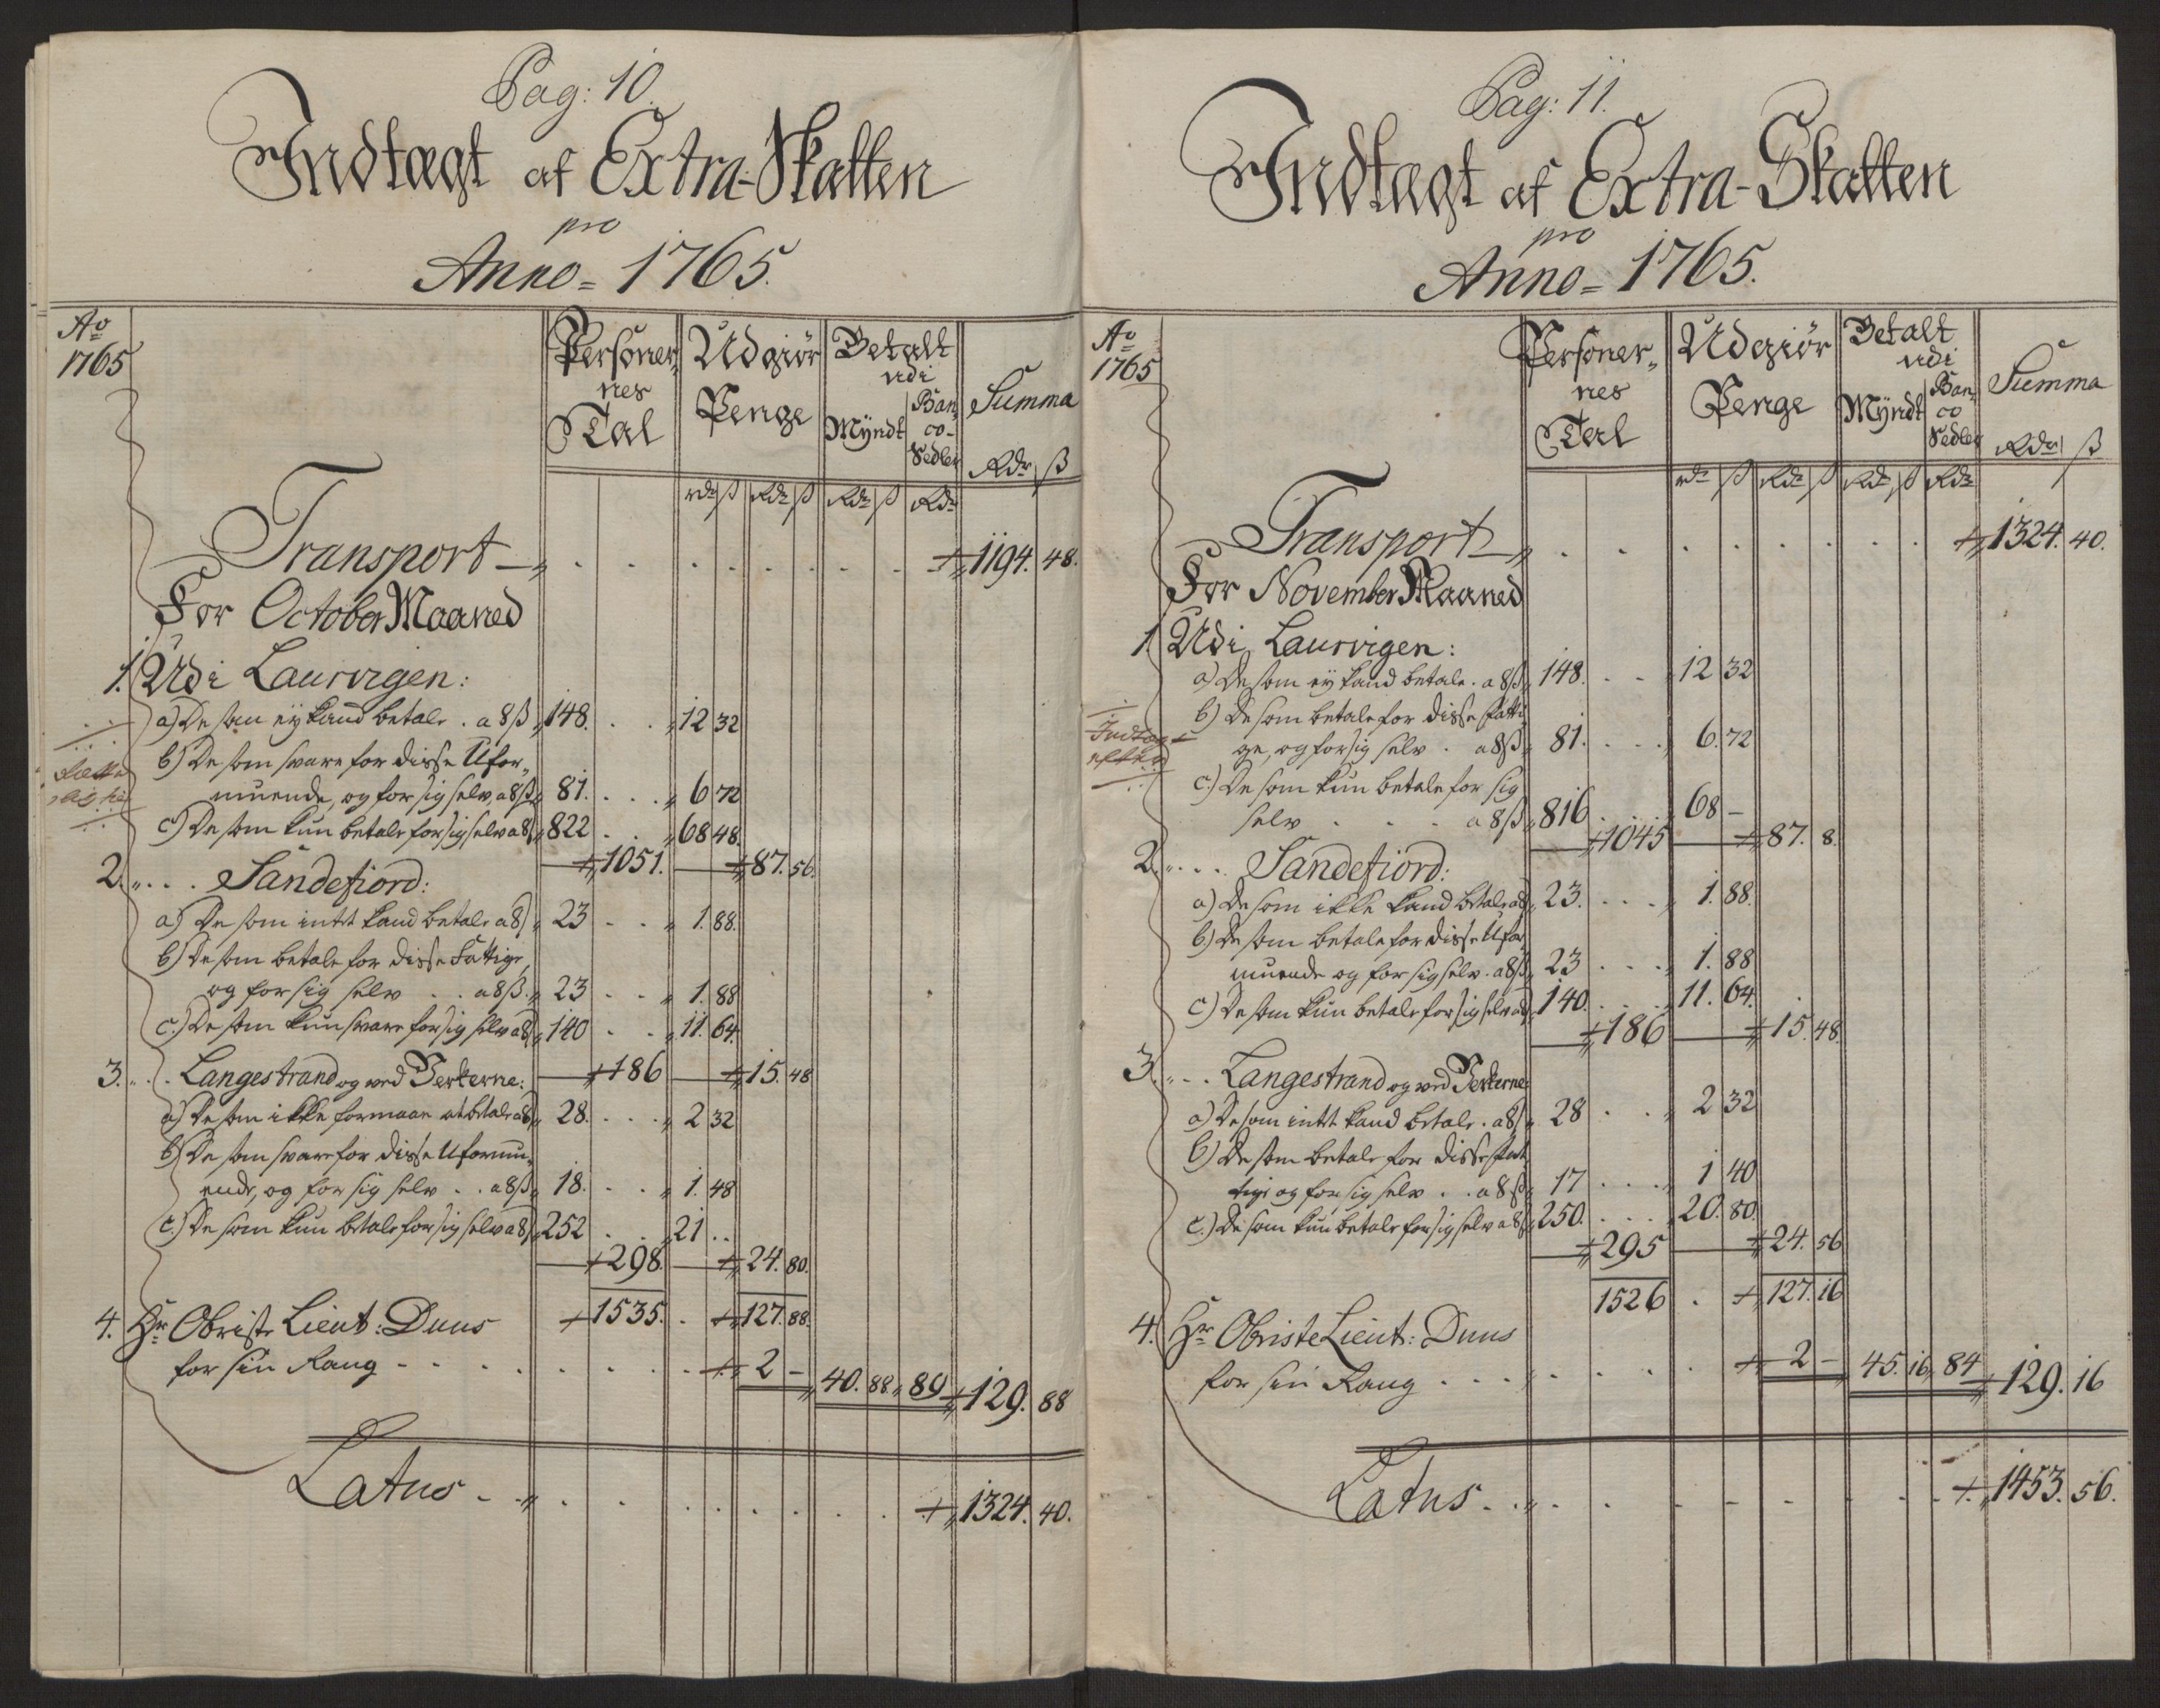 Pag: 10.
Indtægt af Extra-Skatten
pro
Anno = 1765.
Ao
1765
Personer„
nes
Tal
Udgiør
Penge
Betalt
udi
Myndt
Ban„
co-
Sedler
Summa
Rdr ß
rdr ß Rdr ß Rdr ß Rdr
Transport - „ . . . . . . . . 1194. 48.
For October Maaned
1. Udi Laurvigen:
a) De som eÿ kand betale . a 8 ß „ 148. . . „ 12 32
b) De som svare for disse Ufor„
muende, og for sig selv, a 8 ß „ 81. . . . „ 6 72
c) De som kun betale for sig selv a 8 ß „ 822 . . „ 68 48.
1051. 87. 56.
2. „ . . . Sandefiord:
a) De som intet kand betale a 8 ß „ 23 . . „ 1. 88.
b) De som betale for disse Fattige,
og for sig selv . . a 8 ß. „ 23 . . „ 1. 88
c.) De som kun svare for sig selv a 8 ß „ 140 . . „ 11. 64.
186 15. 48
3. „ . . Langestrand og ved Verkerne:
a) De som ikke formaar at betale a 8 ß „ 28. . . . „ 2 32
b) De som svare for disse Uformu„
ende, og for sig selv . . a 8 ß „ 18. . . „ 1. 48
c.) De som kun betale for sig selv a 8 ß „ 252 . . „ 21 . .
298. 24. 80.
1535. . 127. 88.
4. Hr Obriste Lieut: Duus
for sin Rang - - . . . . . . 2 - 40. 88. „ 89 129. 88
Latus - „ . . . . . . . 1324. 40.
Pag: 11.
Indtægt af Extra-Skatten
pro
Anno = 1765.
Ao
1765
Personer„
nes
Tal
Udgiør
Penge
Betalt
udi
Myndt
Ban„
co
Sedler
Summa
Rdr ß
rdr ß Rdr ß Rdr ß Rdr
Transport „ . . . . . . . . 1324. 40.
For November Maaned
1 Udi Laurvigen:
a) De som eÿ kand betale . a 8 ß „ 148. . . 12 32
b) De som betale for disse Fatti„
ge, og for sig selv . a 8 ß „ 81. . . . „ 6. 72
c.) De som kun betale for sig
selv . . . a 8 ß „ 816 . . . 68 -
1045 87. 8.
2. „ . . . Sandefiord:
a) De som ikke kand betale a 8 ß „ 23. . . . „ 1. 88.
b) De som betale for disse Ufor„
muende og for sig selv . a 8 ß „ 23 . . . „ 1. 88
c) De som kun betale for sig selv a 8 ß „ 140. . . . 11. 64.
186 15. 48.
3. „ . . Langestrand og ved Verkerne
a) De som intet kand betale . a 8 ß „ 28 . . „ 2 32
b) De som betale for disse Fat„
tige og for sig selv . . a 8 ß „ 17 . . . . „ 1 40
c.) De som kun betale for sig selv a 8 ß „ 250. . . . „ 20. 80.
295 24. 56
1526 . 127. 16
4. Hr Obriste Lieut: Duus
for sin Rang . . . „ . . . . 2 - 45. 16. 84 129. 16
Latus - . „ . . - - - . . . 1453. 56.